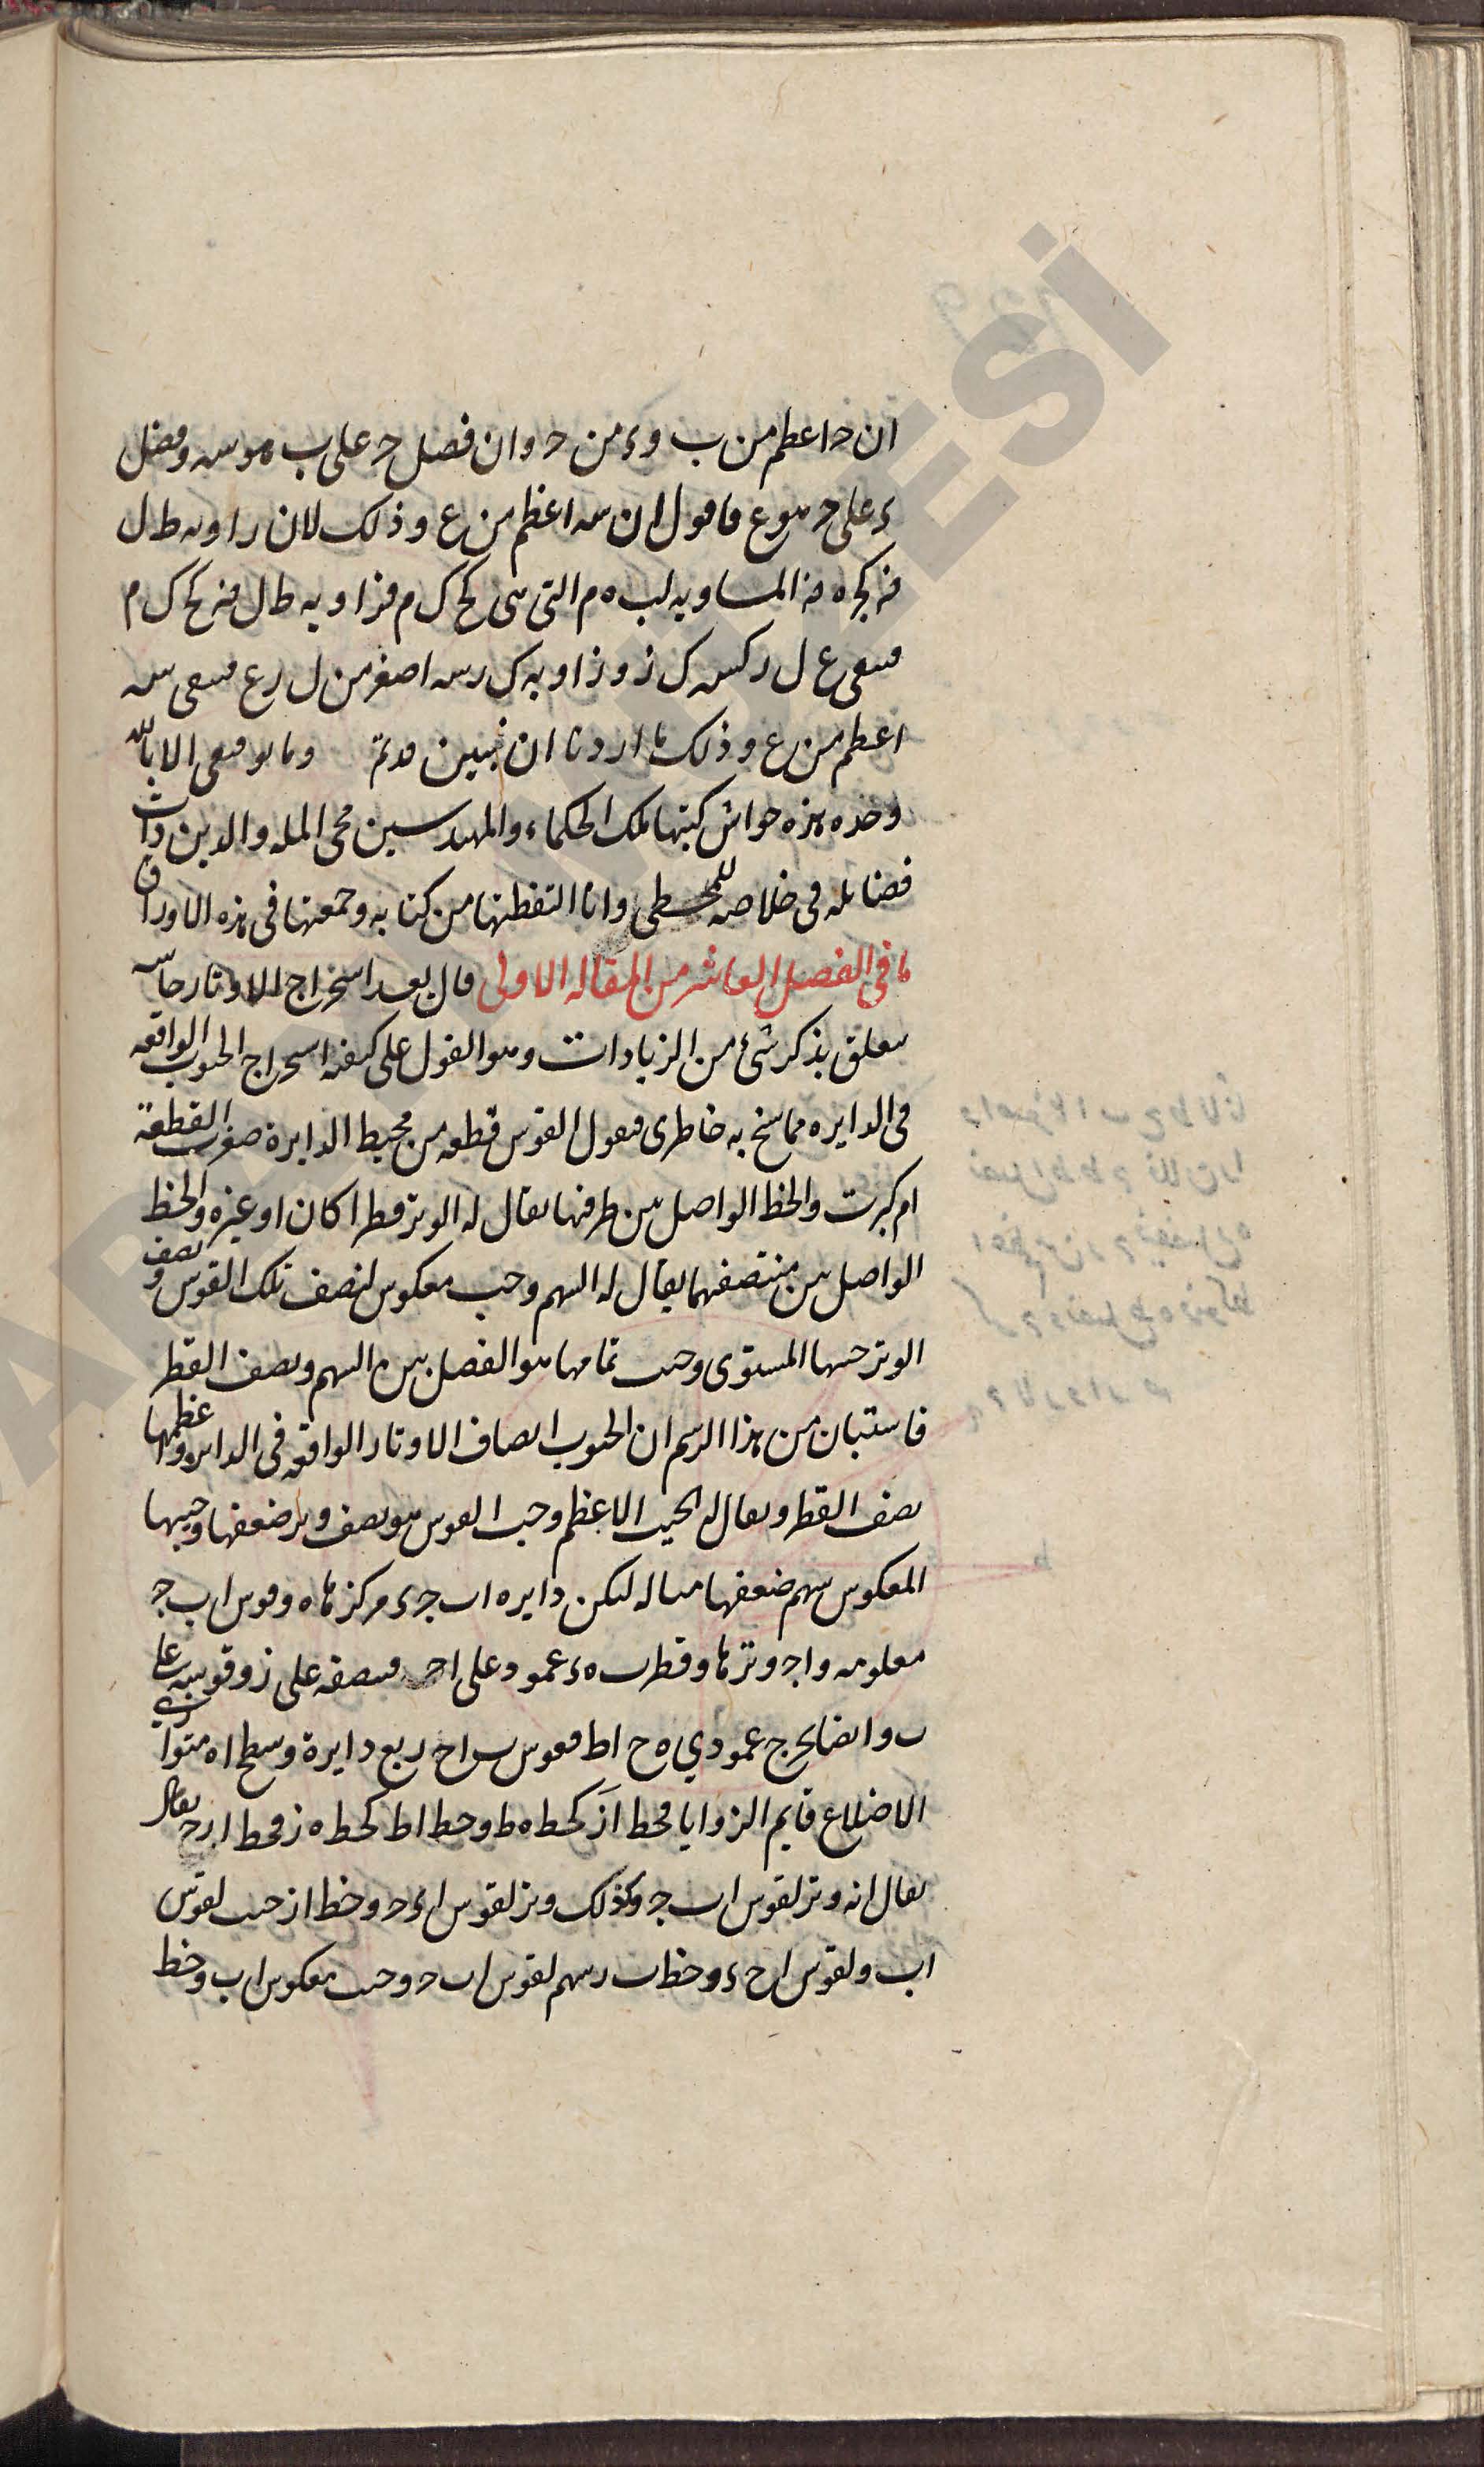 ان حـ اعظم من ب وء من حـ وان فصل حـ على ب هو سه وفضل
ء على حـ هو ع فاقول ان سه اعظم من ع وذلك لان زاويه طال
المساويه لب ه م التى هى كح ك م فزاويه طال كح ك م
فيبقى ع ل ر ك ز وزاويه ك ر سه اصغر من ل ر ع فيبقى سه
اعظم من ع وذلك ما اردنا ان نبين قد تم وما توفيقى الا بالله
وحده هذه حواش كتبها ملك الحكماء والمهندسين محى المله والدين دامت
فضايله فى خلاصه المجسطى وانا التقطتها من كتابه وجمعتها فى هذه الاوراق
ما فى الفصل العاشر من المقاله الاولى قال بعد استخراج الاوتار حاشيه
يتعلق بذكر شئ من الزيادات وهو القول على كيفيه استخراج الجيوب الواقعه
فى الدايره مما سنح به خاطرى فنقول القوس قطعه من محيط الدايرة صغرت القطعة
ام كبرت والخط الواصل بين طرفيها يقال له الوتر قطرا كان او غيره والخط
الواصل بين منتصفيهما يقال له السهم وجيب معكوس لنصف تلك القوس ونصف
الوتر جيبها المستوى وجيب تمامها هو الفصل بين السهم ونصف القطر
فاستبان من هذا الرسم ان الجيوب انصاف الاوتار الواقعه فى الدايره واعظمها
نصف القطر ويقال له الجيب الاعظم وجيب القوس هو نصف وتر ضعفها وجيبها
المعكوس سهم ضعفها مثاله ليكن دايره اب جـ ء مركزها ه وقوس اب جـ
معلومه واجـ وترها وقطر ب ه ء عمود على اجـ فينصفه على ز وقوسيه على
ب وايضا يخرج عمودي ه ح اط فقوس ب اح ربع دايرة وسطح اه متوازي
الاضلاع قايم الزوايا فخط از كخط ه ط وخط اط كخط ه ز فخط ا ز حـ يقال
يقال انه وتر لقوس اب جـ وكذلك وتر لقوس اء حـ وخط از جيب لقوس
اب ولقوس اح ء وخط ب ر سهم لقوس اب حـ وجيب معكوس اب وخط